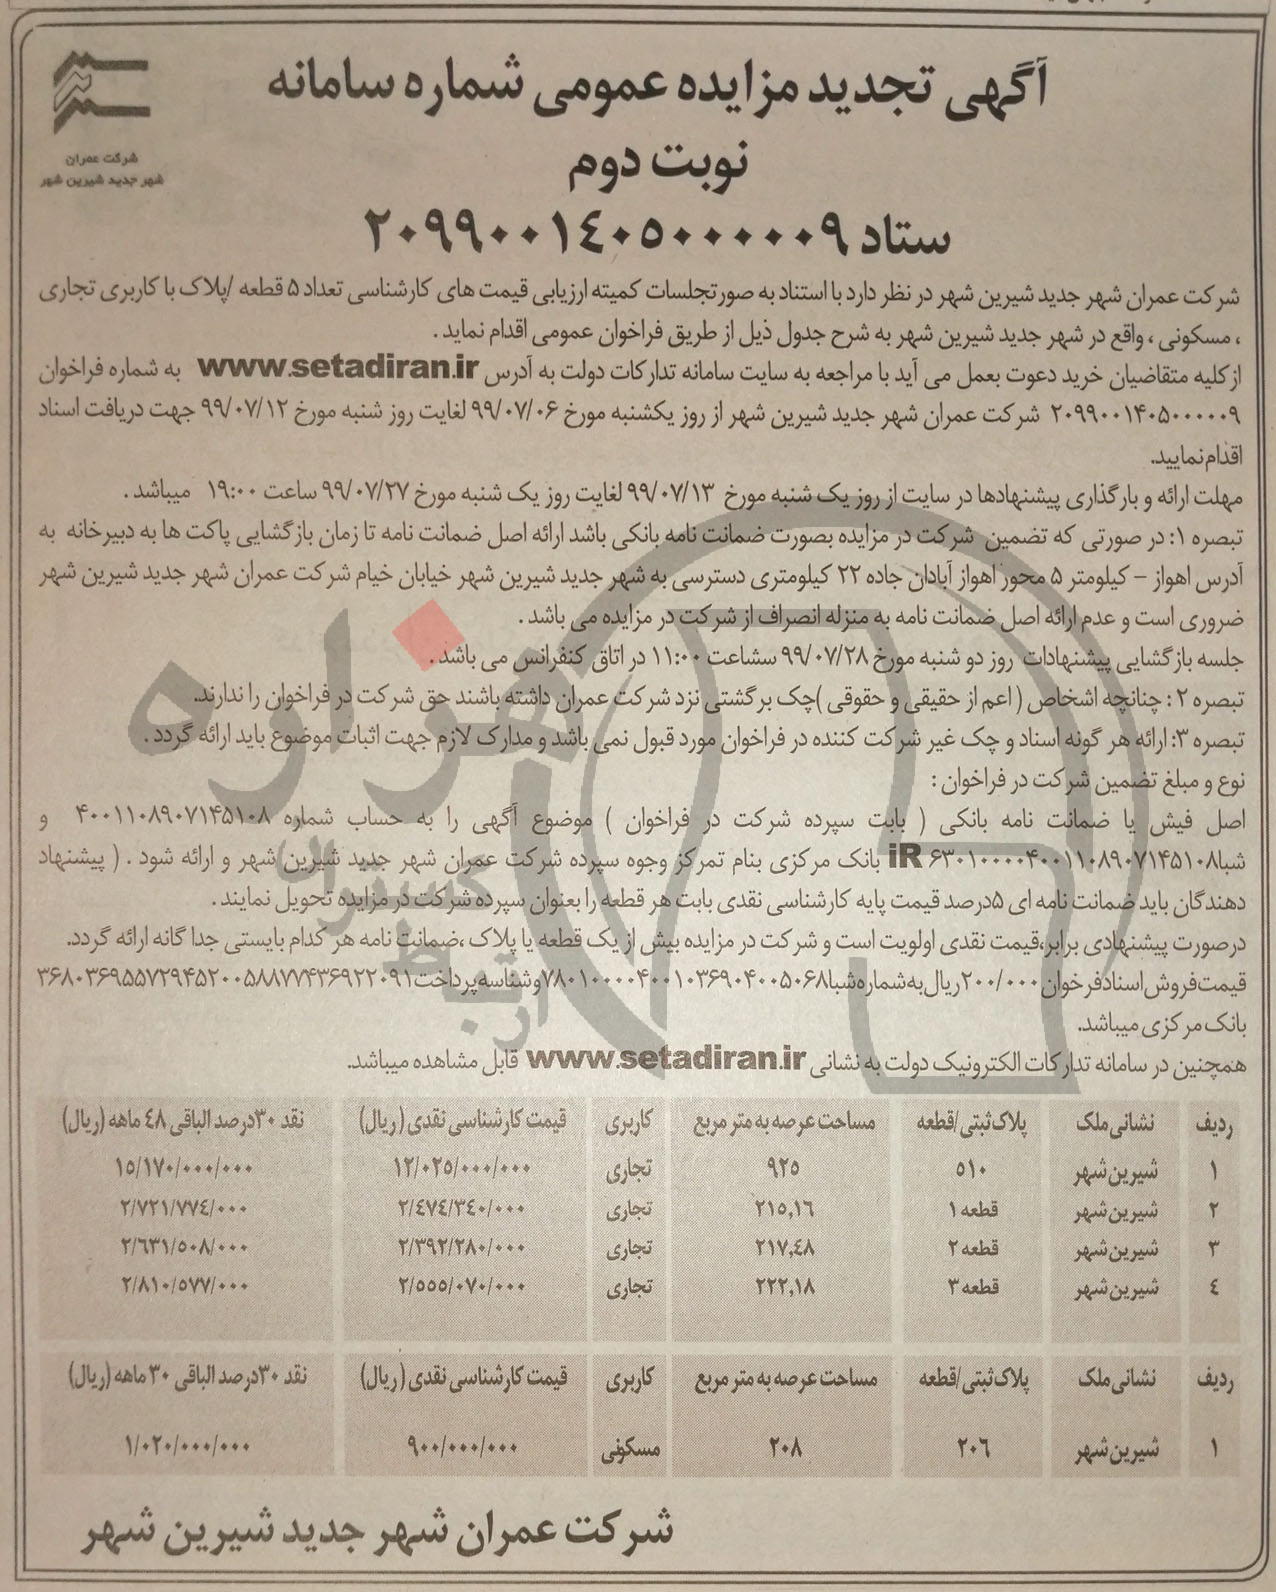 آگهی تجدید مزایده عمومی شماره سامانه
نوبت دوم
ستاد ۲۰۹۹۰۰۱٤۰٥۰۰۰۰۰۹
شرکت عمران
شهر جدید شیرین شهر
شرکت عمران شهر جدید شیرین شهر در نظر دارد با استناد به صورتجلسات کمیته ارزیابی قیمت های کارشناسی تعداد ۵ قطعه /پلاک با کاربری تجاری
، مسکونی ، واقع در شهر جدید شیرین شهر به شرح جدول ذیل از طریق فراخوان عمومی اقدام نماید .
از کلیه متقاضیان خرید دعوت بعمل می آید با مراجعه به سایت سامانه تدارکات دولت به آدرس www.setadiran.ir به شماره فراخوان
۲۰۹۹۰۰۱۴۰۵۰۰۰۰۰۹ شرکت عمران شهر جدید شیرین شهر از روز یکشنبه مورخ ۹۹/۰۷/۰۶ لغایت روز شنبه مورخ ۹۹/۰۷/۱۲ جهت دریافت اسناد
اقدام نمایید.
مهلت ارائه و بارگذاری پیشنهادها در سایت از روز یک شنبه مورخ ۹۹/۰۷/۱۳ لغایت روز یک شنبه مورخ ۹۹/۰۷/۲۷ ساعت ۱۹:۰۰ میباشد .
تبصره ۱: در صورتی که تضمین شرکت در مزایده بصورت ضمانت نامه بانکی باشد ارائه اصل ضمانت نامه تا زمان بازگشایی پاکت ها به دبیرخانه به
آدرس اهواز – کیلومتر ۵ محور اهواز آبادان جاده ۲۲ کیلومتری دسترسی به شهر جدید شیرین شهر خیابان خیام شرکت عمران شهر جدید شیرین شهر
ضروری است و عدم ارائه اصل ضمانت نامه به منزله انصراف از شرکت در مزایده می باشد .
جلسه بازگشایی پیشنهادات روز دو شنبه مورخ ۹۹/۰۷/۲۸ سشاعت ۱۱:۰۰ در اتاق کنفرانس می باشد .
تبصره ۲ : چنانچه اشخاص ( اعم از حقیقی و حقوقی )چک برگشتی نزد شرکت عمران داشته باشند حق شرکت در فراخوان را ندارند.
تبصره ۳: ارائه هر گونه اسناد و چک غیر شرکت کننده در فراخوان مورد قبول نمی باشد و مدارک لازم جهت اثبات موضوع باید ارائه گردد .
نوع و مبلغ تضمین شرکت در فراخوان :
اصل فیش یا ضمانت نامه بانکی ( بابت سپرده شرکت در فراخوان ) موضوع آگهی را به حساب شماره ۴۰۰۱۱۰۸۹۰۷۱۴۵۱۰۸ و
شبا iR ۶۳۰۱۰۰۰۰۴۰۰۱۱۰۸۹۰۷۱۴۵۱۰۸ بانک مرکزی بنام تمرکز وجوه سپرده شرکت عمران شهر جدید شیرین شهر و ارائه شود . ( پیشنهاد
دهندگان باید ضمانت نامه ای ۵درصد قیمت پایه کارشناسی نقدی بابت هر قطعه را بعنوان سپرده شرکت در مزایده تحویل نمایند .
درصورت پیشنهادی برابر،قیمت نقدی اولویت است و شرکت در مزایده بیش از یک قطعه یا پلاک ،ضمانت نامه هر کدام بایستی جدا گانه ارائه گردد.
قیمت فروش اسناد فرخوان ۲۰۰/۰۰۰ ریال به شماره شبا ۷۸۰۱۰۰۰۰۴۰۰۱۰۳۶۹۰۴۰۰۵۰۶۸ و شناسه پرداخت ۳۶۸۰۳۶۹۵۵۷۲۹۴۵۲۰۰۵۸۸۷۷۴۳۶۹۲۲۰۹۱
بانک مرکزی میباشد.
همچنین در سامانه تدارکات الکترونیک دولت به نشانی www.setadiran.ir قابل مشاهده میباشد.
ردیف نشانی ملک پلاک ثبتی/قطعه مساحت عرصه به متر مربع کاربری قیمت کارشناسی نقدی (ریال) نقد ۳۰درصد الباقی ٤۸ ماهه (ریال)
۱ شیرین شهر ٥۱۰ ۹۲٥ تجاری ۱۲/۰۲٥/۰۰۰/۰۰۰ ۱٥/۱۷۰/۰۰۰/۰۰۰
۲ شیرین شهر قطعه ۱ ۲۱٥,۱٦ تجاری ۲/٤۷٤/۳٤۰/۰۰۰ ۲/۷۲۱/۷۷٤/۰۰۰
۳ شیرین شهر قطعه ۲ ۲۱۷,٤۸ تجاری ۲/۳۹۲/۲۸۰/۰۰۰ ۲/٦۳۱/٥۰۸/۰۰۰
٤ شیرین شهر قطعه ۳ ۲۲۲,۱۸ تجاری ۲/٥٥٥/۰۷۰/۰۰۰ ۲/۸۱۰/٥۷۷/۰۰۰
ردیف نشانی ملک پلاک ثبتی/قطعه مساحت عرصه به متر مربع کاربری قیمت کارشناسی نقدی (ریال) نقد ۳۰درصد الباقی ۳۰ ماهه (ریال)
۱ شیرین شهر ۲۰٦ ۲۰۸ مسکونی ۹۰۰/۰۰۰/۰۰۰ ۱/۰۲۰/۰۰۰/۰۰۰
شرکت عمران شهر جدید شیرین شهر
هزاره